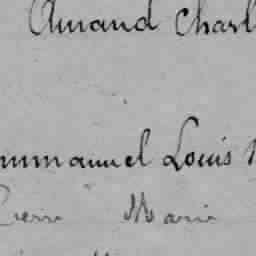 Amand Charl
mmanuel Louis
Pierre Marie